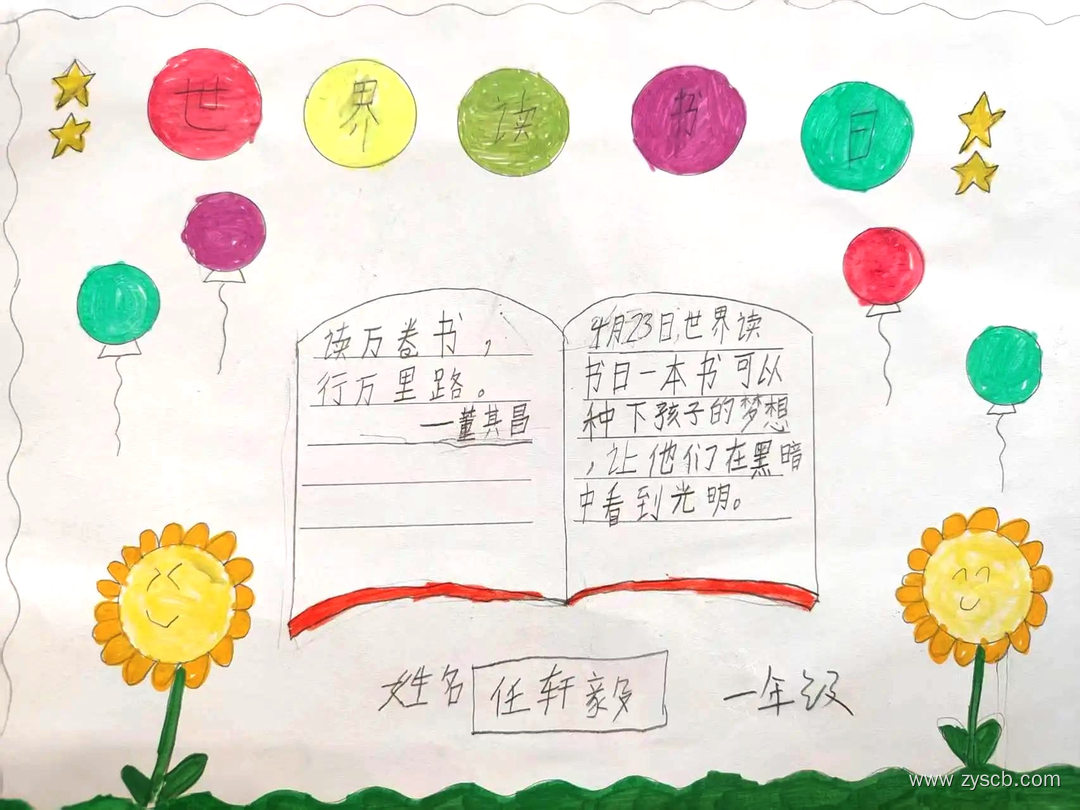 世界读书日
读万卷书，
行万里路。
—董其昌
4月23日，世界读
书日一本书可以
种下孩子的梦想
，让他们在黑暗
中看到光明。
姓名 任轩毅 一年级
www.zyscb.com